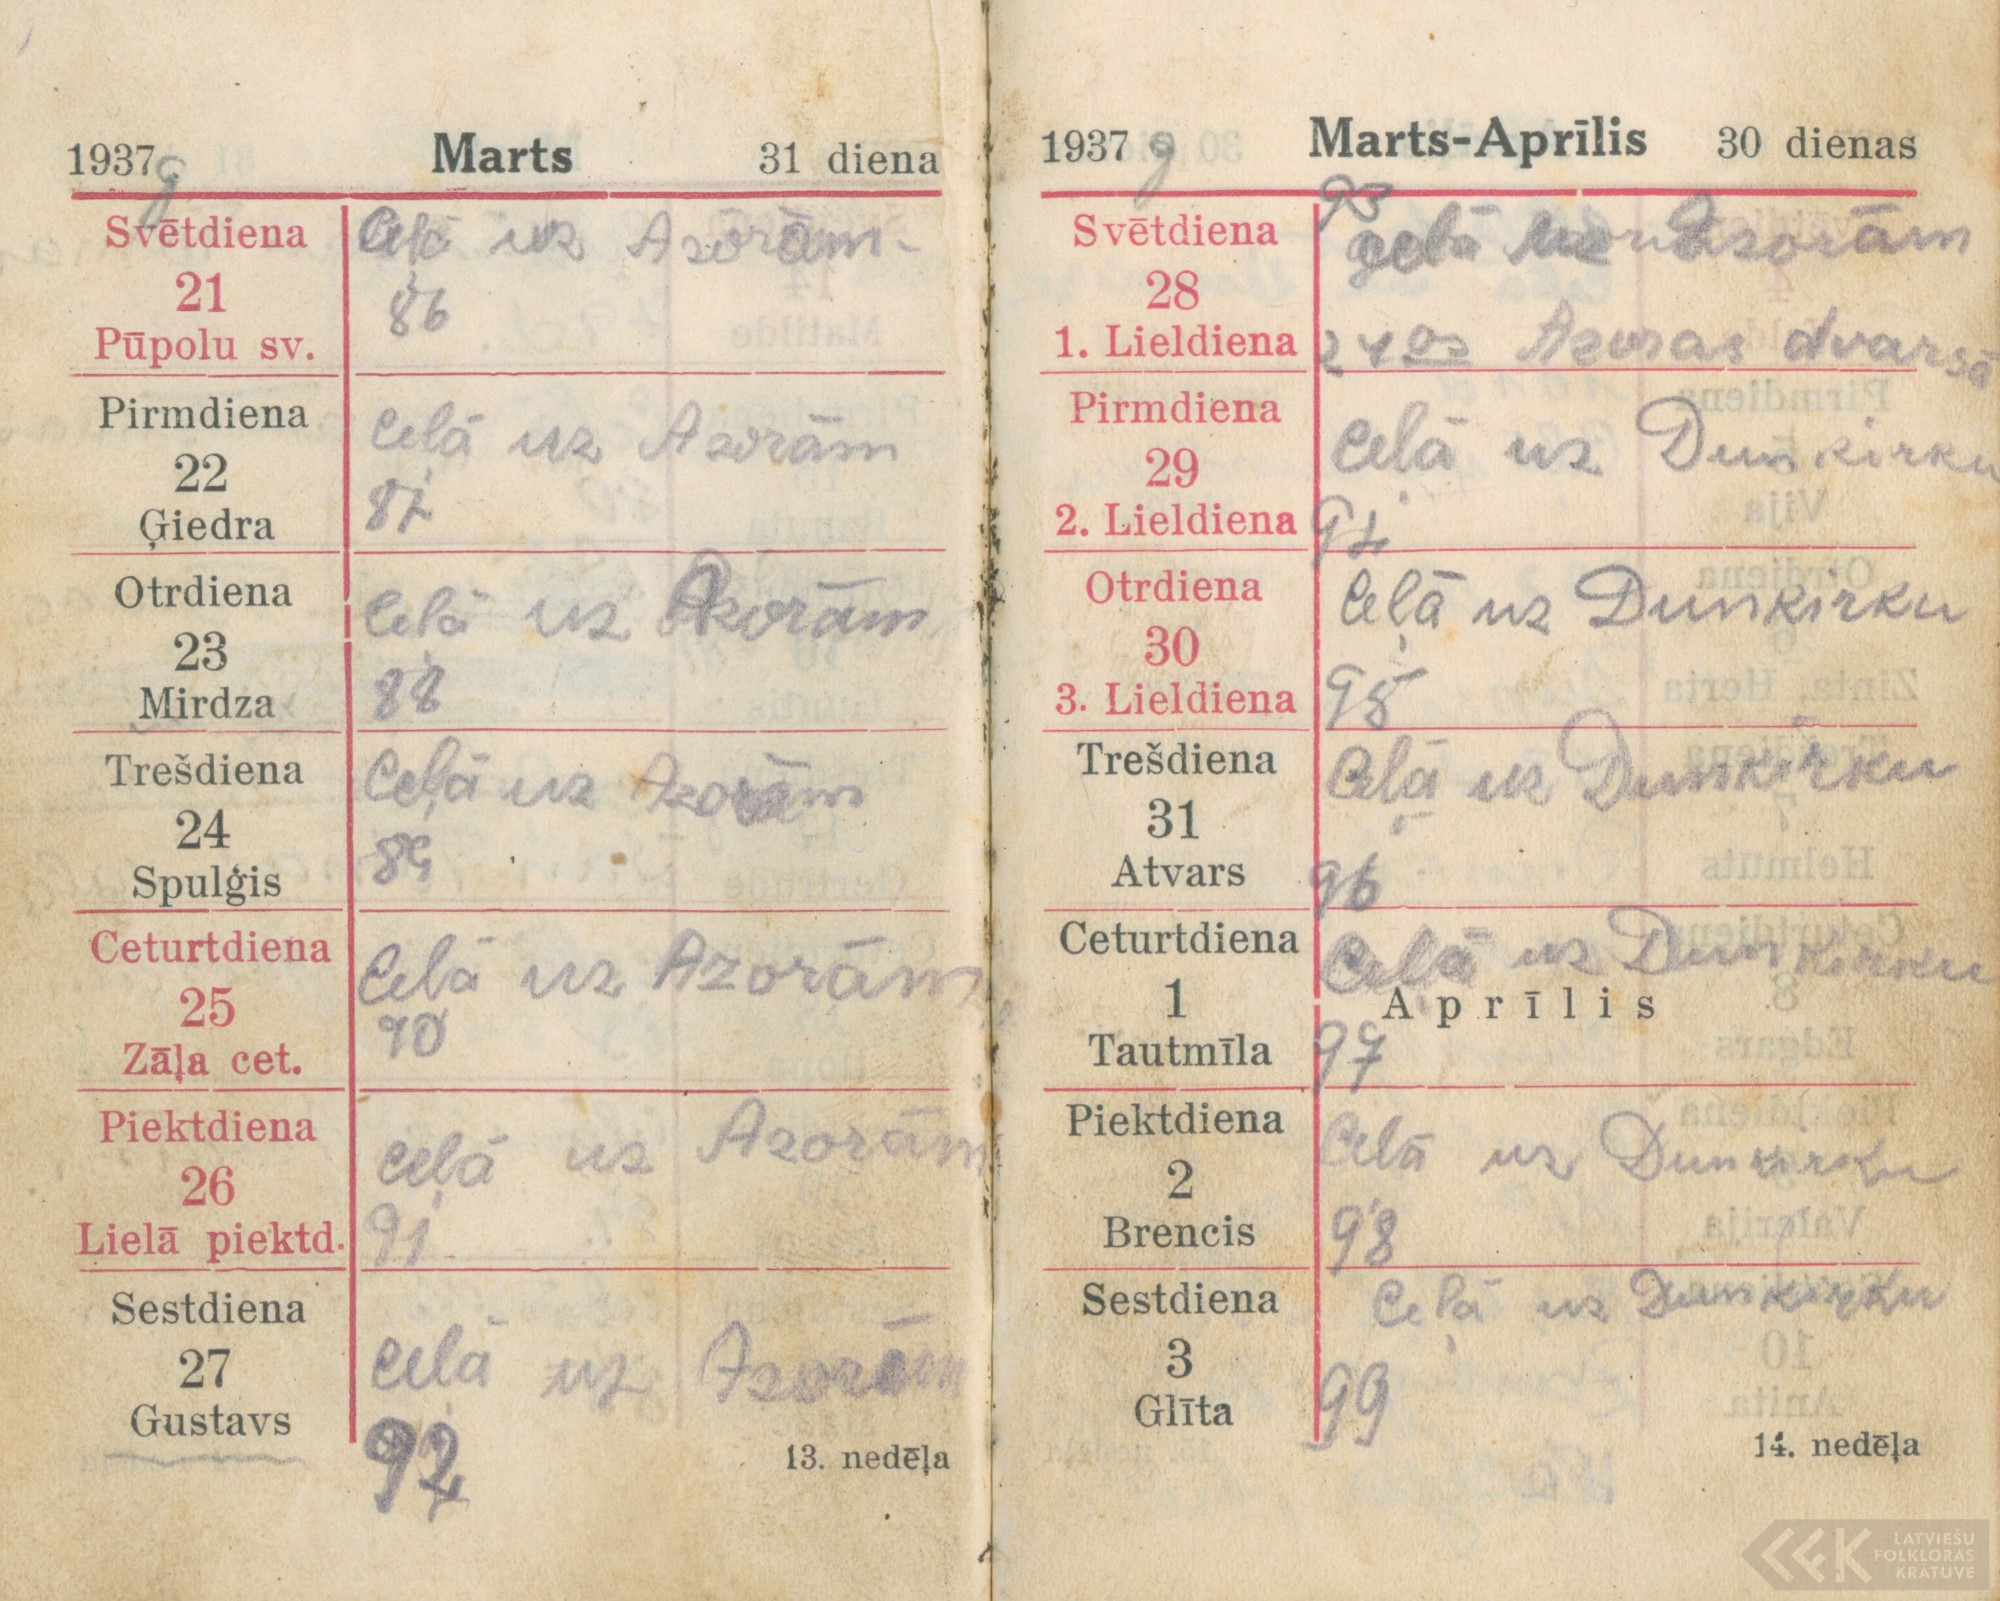 1937 g Marts 31 diena
Svētdiena
21
Pūpolu sv.
Ceļā uz Azorām-
86
Pirmdiena
22
Ģiedra
Ceļā uz Azorām
87
Otrdiena
23
Mirdza
Ceļā uz Azorām
88
Trešdiena
24
Spulģis
Ceļā uz Azorām
89
Ceturtdiena
25
Zāļa cet.
Ceļā uz Azorām
90
Piektdiena
26
Lielā piektd.
Ceļā uz Azorām
91
Sestdiena
27
Gustavs
Ceļā uz Azorām
92
13. nedēļa
1937 g Marts-Aprīlis 30 dienas
Svētdiena
28
1. Lieldiena
93
Ceļā uz Azorām
24 05 Azoras dvarsā
Pirmdiena
29
2. Lieldiena
Ceļā uz Dunkirku
94
Otrdiena
30
3. Lieldiena
Ceļā uz Dunkirku
95
Trešdiena
31
Atvars
Ceļā uz Dunkirku
96
Ceturtdiena
1
Tautmīla
Ceļā uz Dunkirku
Aprīlis
97
Piektdiena
2
Brencis
Celā uz Dunkirku
98
Sestdiena
3
Glīta
Ceļā uz Dunkirku
99
14. nedēļa
LATVIEŠU
FOLKLORAS
KRATUVE